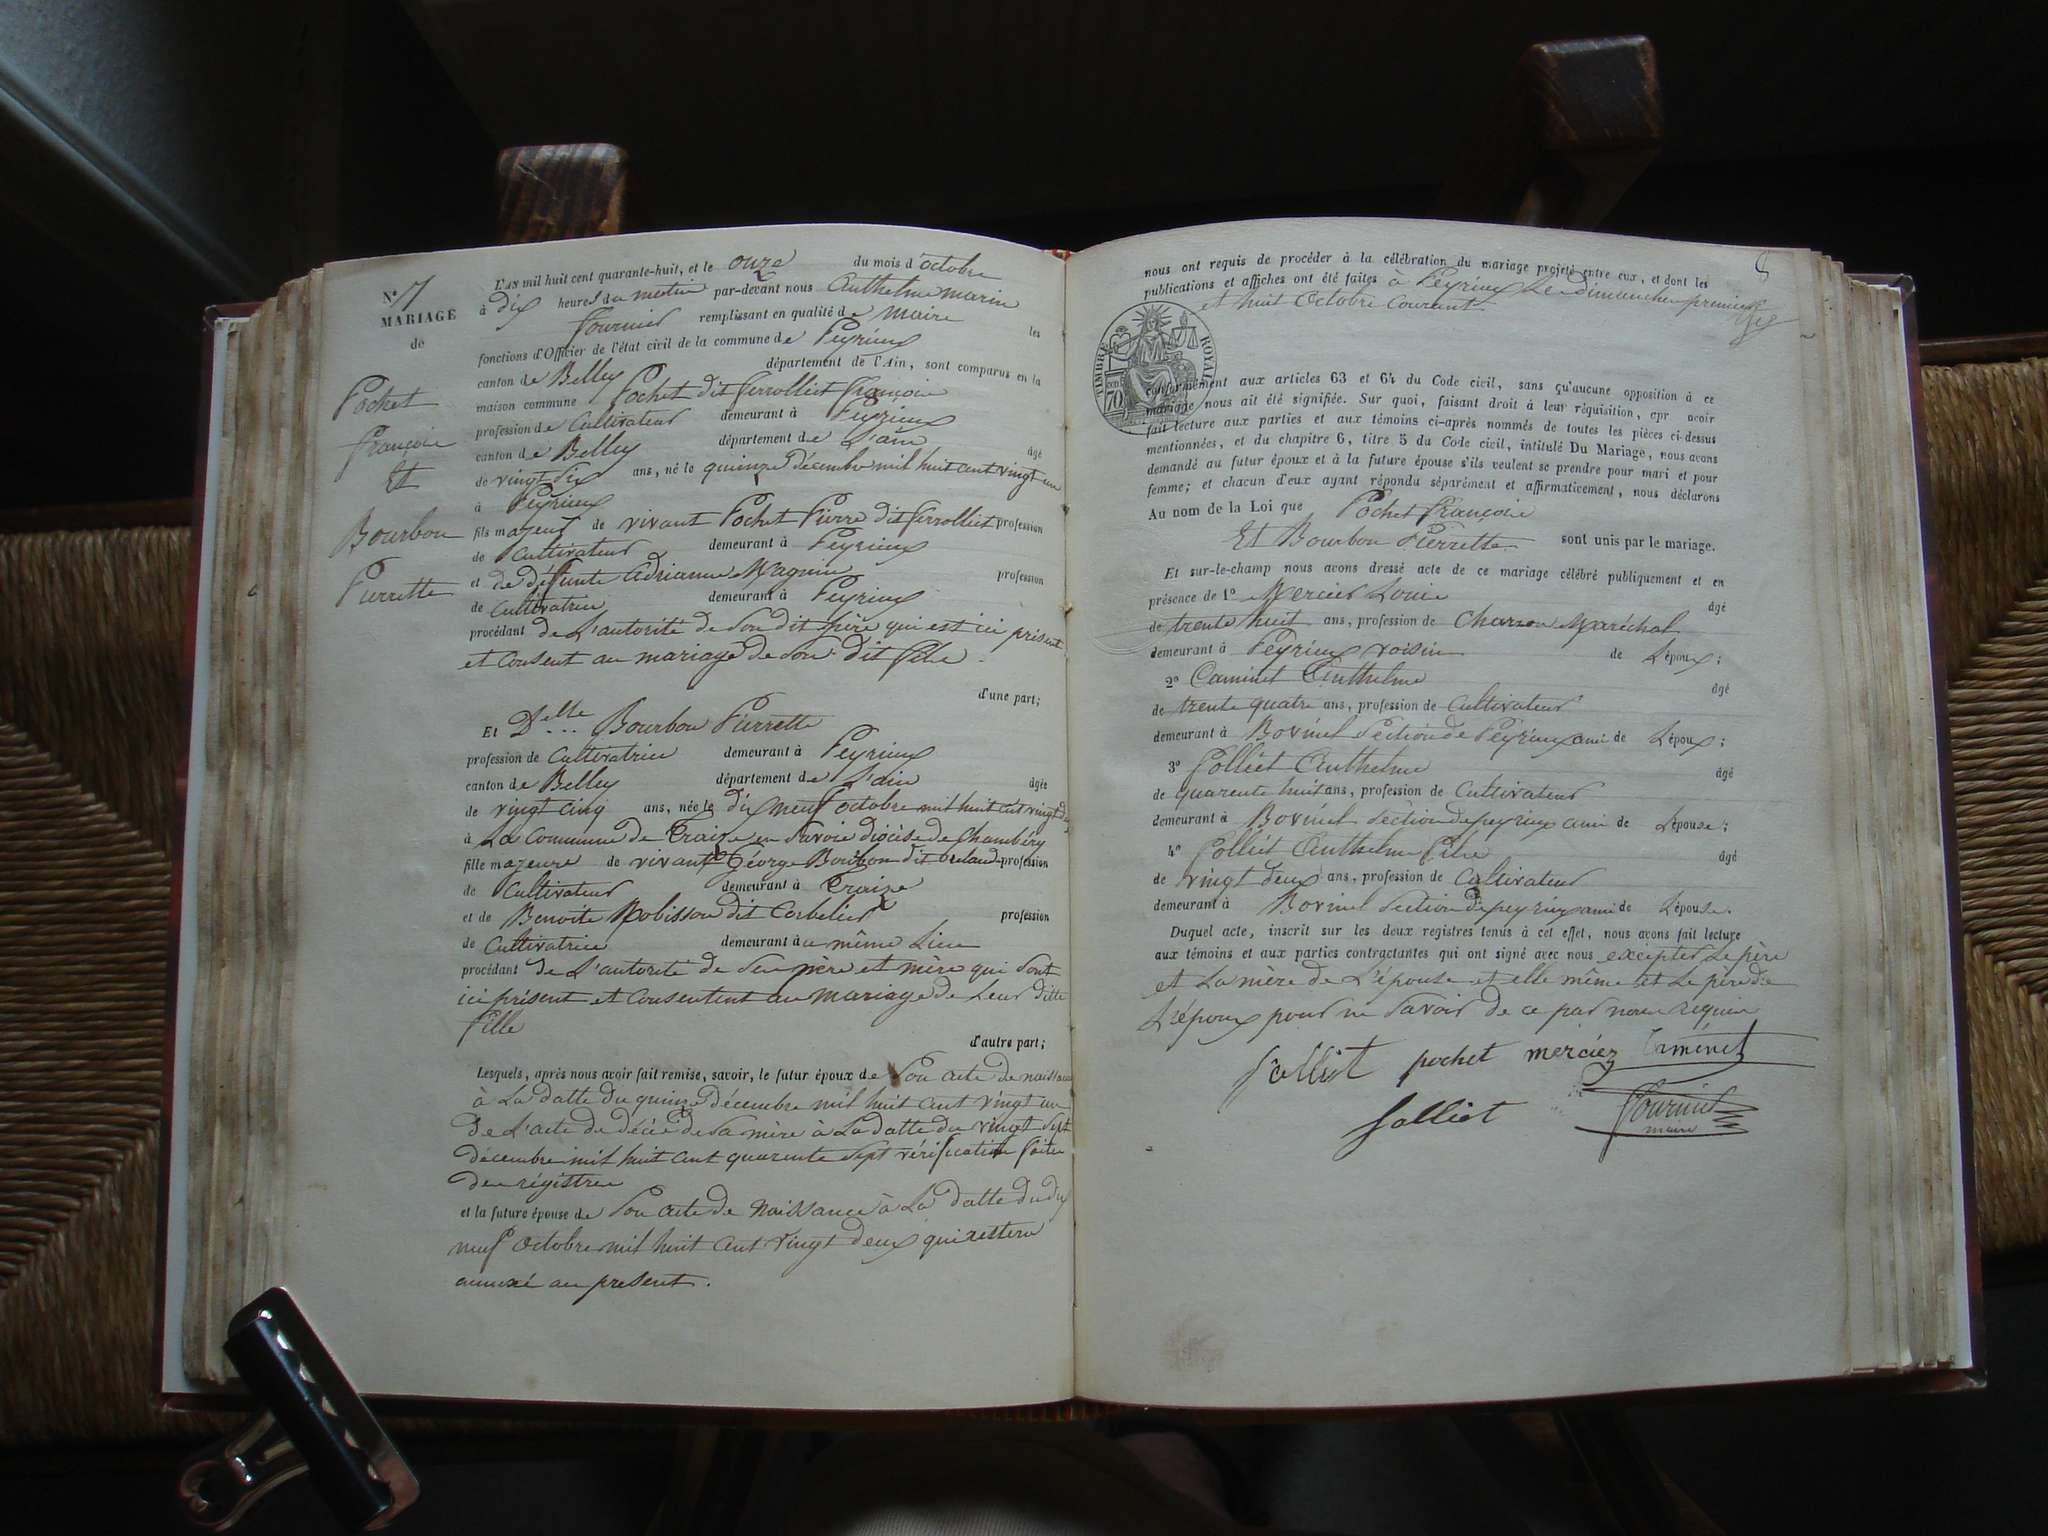 N° 7
MARIAGE
de
Pochet
françois
Et
Bourbon
Pierrette
L'AN mil huit cent quarante-huit, et le onze du mois d'octobre
à dix heures du matin par-devant nous Anthelme marin
fournier remplissant en qualité de maire les
fonctions d'Officier de l'état civil de la commune de Peyrieux
canton de Belley département de l'Ain, sont comparus en la
maison commune Pochet dit ferrolliet françois
profession de Cultivateur demeurant à Peyrieux
canton de Belley département de L'ain âgé
de vingt six ans, né le quinze décembre mil huit cent vingt un
à Peyrieux
fils majeur de vivant Pochet Pierre dit ferrolliet profession
de Cultivateur demeurant à Peyrieux
et de défunte Adrianne Magnin profession
de Cultivatrice demeurant à Peyrieux
procédant de L'autorité de Son dit père qui est ici présent
et consent au mariage de Son dit fils
d'une part;
Et Delle Bourbon Pierrette
profession de Cultivatrice demeurant à Peyrieux
canton de Belley département de L'ain âgée
de vingt cinq ans, née le dix neuf octobre mil huit cent vingt deux
à La Commune de Traize en Savoie diocèse de Chambéry
fille majeure de vivant George Bourbon dit profession
de Cultivateur demeurant à Traize
et de Benoite Robisson dit Corbelier profession
de Cultivatrice demeurant à u même Lieu
procédant de L'autorité de Ses père et mère qui Sont
ici présent et Consentent au mariage de Leur ditte
fille
d'autre part;
Lesquels, après nous avoir fait remise, savoir, le futur époux de Son acte de naissance
à La datte du quinze décembre mil huit cent vingt un
De L'acte de décé de Sa mère à La datte du vingt Sept
décembre mil huit cent quarente Sept vérification faite
des régistres
et la future épouse de Son acte de Naissance à La datte du dix
neuf Octobre mil huit cent vingt deux qui restera
annexé au présent.
8
nous ont requis de procéder à la célébration du mariage projeté entre eux, et dont les
publications et affiches ont été faites à Peyrieux Les dimanches premier
et huit Octobre Courant
TIMBRE ROYAL
70
conformément aux articles 63 et 64 du Code civil, sans qu'aucune opposition à ce
mariage nous ait été signifiée. Sur quoi, faisant droit à leur réquisition, apr avoir
fait lecture aux parties et aux témoins ci-après nommés de toutes les pièces ci-dessus
mentionnées, et du chapitre 6, titre 5 du Code civil, intitulé Du Mariage, nous avons
demandé au futur époux et à la future épouse s'ils veulent se prendre pour mari et pour
femme; et chacun d'eux ayant répondu séparément et affirmativement, nous déclarons
Au nom de la Loi que Pochet françois
Et Bourbon Pierrette sont unis par le mariage.
Et sur-le-champ nous avons dressé acte de ce mariage célébré publiquement et en
présence de 1° Mercier Louis âgé
de trente huit ans, profession de Charron Maréchal
demeurant à Peyrieux voisin de L'époux;
2° Caminet Anthelme âgé
de trente quatre ans, profession de Cultivateur
demeurant à Bovinel Section de Peyrieux ami de L'époux;
3° Jolliet Anthelme âgé
de quarente huit ans, profession de Cultivateur
demeurant à Bovinel Section de peyrieux ami de L'épouse;
4° Jolliet Anthelme fils âgé
de vingt deux ans, profession de Cultivateur
demeurant à Bovinel Section de peyrieux ami de L'épouse.
Duquel acte, inscrit sur les deux registres tenus à cet effet, nous avons fait lecture
aux témoins et aux parties contractantes qui ont signé avec nous excepter Le père
et La mère de L'épouse et elle même et Le père de
L'époux pour ne Savoir de ce par nous requis
Jolliet pochet mercier Caminet
Jolliet Fournier
maire